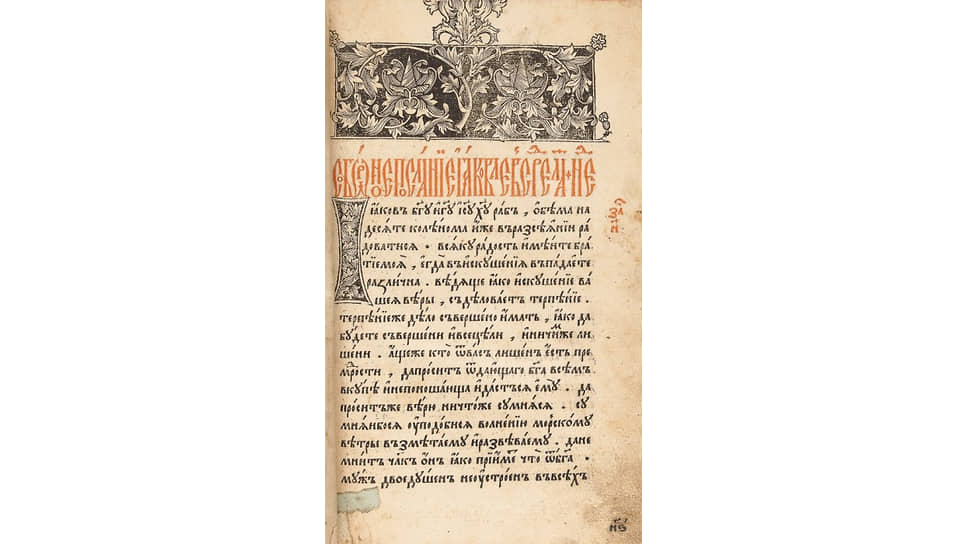 Собо́рное посла́нїе і҆а́ковле в̾серѡссі́и
І҆а́ковъ бг҃у и҆ гд҃у і҆с꙽ у хс꙽у ра́бъ , ѻ҆бѣ́ма на
десяте колѣ́нома и҆́же въ разсѣ́янїи ра
доватися . вся́ку ра́дость и҆мѣ́йте бра
тїемоя̀ , є҆гда̀ въ и҆скꙋше́нїя въпа́даете
разли́чна . вѣ́дяще ꙗ҆́ко и҆скꙋше́нїе ва
шея вѣ́ры , съдѣ́ловаетъ терпѣ́нїе .
терпѣ́нїе же дѣ́ло съверше́но и҆́мать , ꙗ҆́ко да
бꙋ́дете съверше́ни и҆ всецѣ́ли , и҆ ничи́мже ли
ше́ни . а҆́ще же кто̀ ѿ ва́съ лише́н є҆́сть пре
мⷣрости , да про́ситъ ѿ даю́щаго бг҃а всѣ́мъ
вкꙋ́пѣ и҆ непоноша́юща и҆ да́стъся є҆мꙋ̀ . да
про́ситъ же вѣ́рою ничто́же сꙋмня́ся . сꙋ
мня́йбося ᲂу҆подо́бися волне́нїю морско́мꙋ
вѣ́тры възмѣта́емꙋ и҆ развѣва́емꙋ . да не
мни́тъ чл҃къ ѻ҆́нъ ꙗ҆́ко прїи́метъ что̀ ѿ бг҃а .
мꙋ́жъ двоедꙋ́шенъ неᲂу҆стро́енъ въ всѣ́хъ
нв